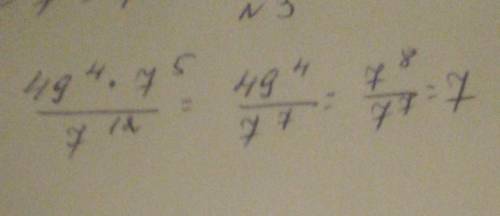 №3
49⁴ · 7⁵ / 7¹² = 49⁴ / 7⁷ = 7⁸ / 7⁷ = 7